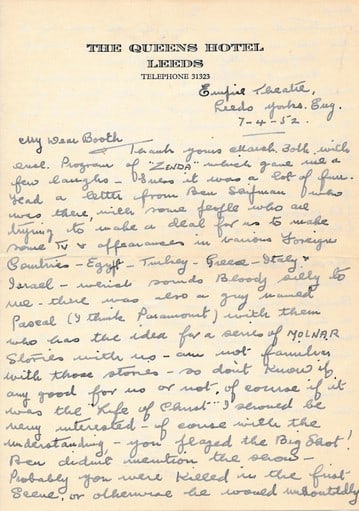 THE QUEENS HOTEL
LEEDS
TELEPHONE 31323
Empire Theatre,
Leeds Yorks. Eng.
7-4-52.
My Dear Booth
Thank yours March 30th with
encl. Program of "ZENDA" which gave me a
few laughs - Guess it was a lot of fun.
Had a letter from Ben Shipman who
was there, with some people who are
trying to make a deal for us to make
some TV & appearances in various Foreign
Countries - Egypt - Turkey - Greece - Italy &
Israel - which sounds Bloody silly to
me - there was also a guy named
Pascal (I think Paramount) with them
who has the idea for a series of MOLNAR
Stories with us - am not familiar
with those stories - so dont know if
any good for us or not, of course if it
was the "Life of Christ" I should be
very interested - of course with the
understanding - you played the Big Shot!
Ben didnt mention the show -
Probably you were Killed in the first
Scene, or otherwise he would undoubtedly